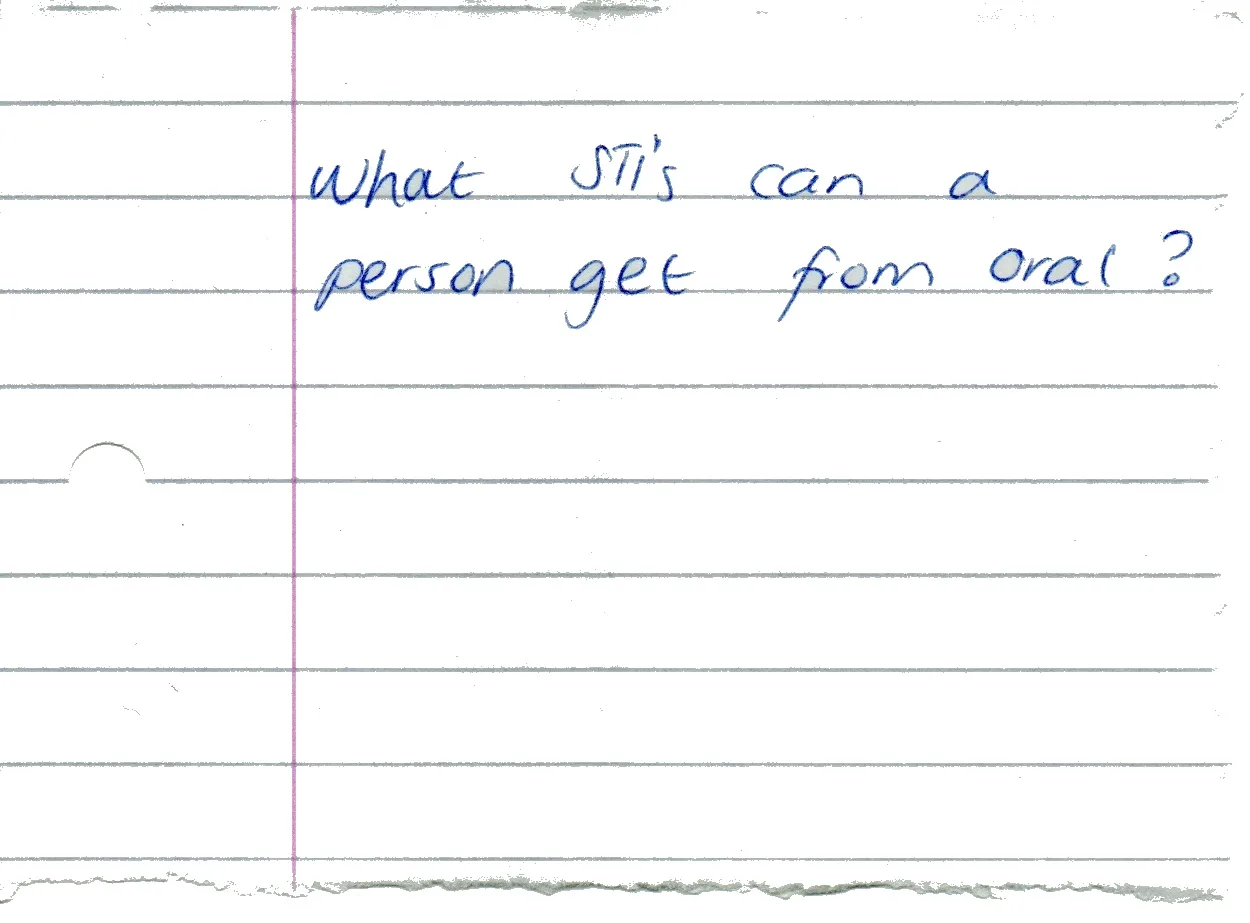 What STI's can a
person get from oral?